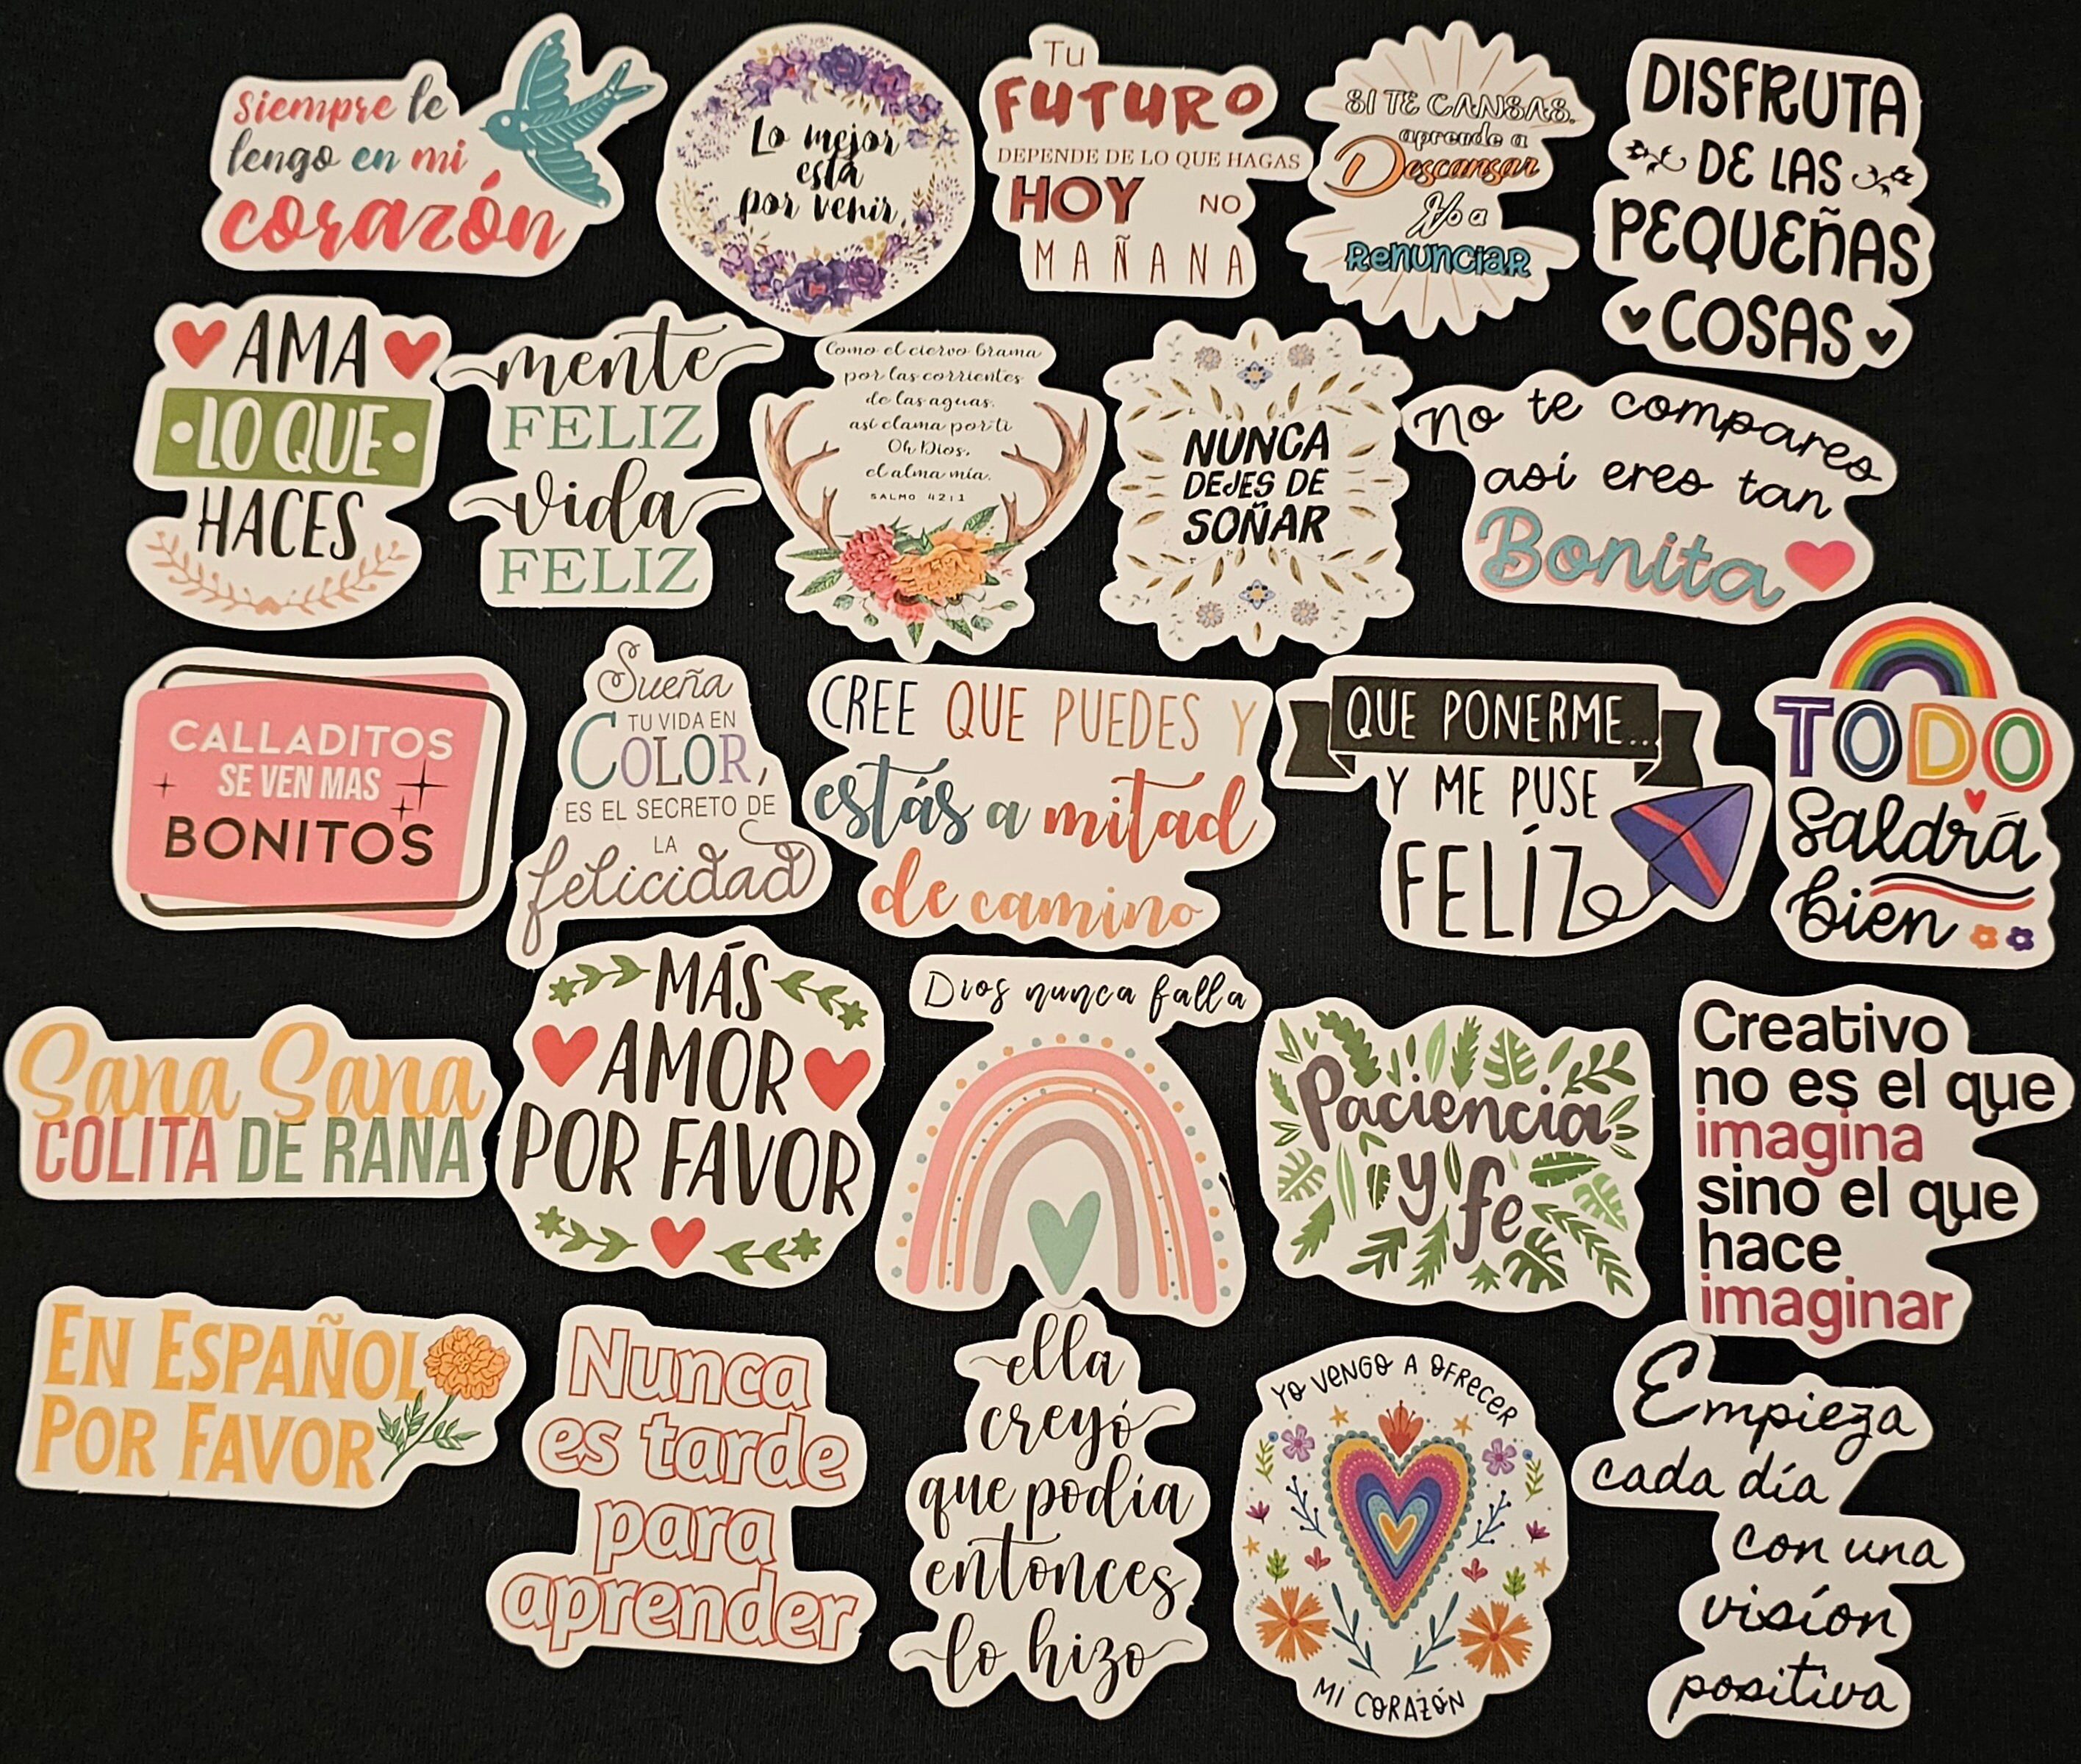 Siempre te
tengo en mi
corazón
Lo mejor
está
por venir
Tu
FUTURO
DEPENDE DE LO QUE HAGAS
HOY NO
MAÑANA
SI TE CANSAS.
aprende a
Descansar
No a
Renunciar
DISFRUTA
DE LAS
PEQUEÑAS
COSAS
AMA
LO QUE
HACES
mente
FELIZ
vida
FELIZ
Como el ciervo brama
por las corrientes
de las aguas,
así clama por ti
Oh Dios,
el alma mía.
SALMO 42:1
NUNCA
DEJES DE
SOÑAR
No te compares
así eres tan
Bonita
CALLADITOS
SE VEN MAS
BONITOS
Sueña
TU VIDA EN
COLOR,
ES EL SECRETO DE
LA
felicidad
CREE QUE PUEDES Y
estás a mitad
de camino
QUE PONERME...
Y ME PUSE
FELÍZ
TODO
saldrá
bien
Sana Sana
COLITA DE RANA
MÁS
AMOR
POR FAVOR
Dios nunca falla
Paciencia
y fe
Creativo
no es el que
imagina
sino el que
hace
imaginar
EN ESPAÑOL
POR FAVOR
Nunca
es tarde
para
aprender
ella
creyó
que podía
entonces
lo hizo
YO VENGO A OFRECER
MI CORAZÓN
Empieza
cada día
con una
visíon
positiva